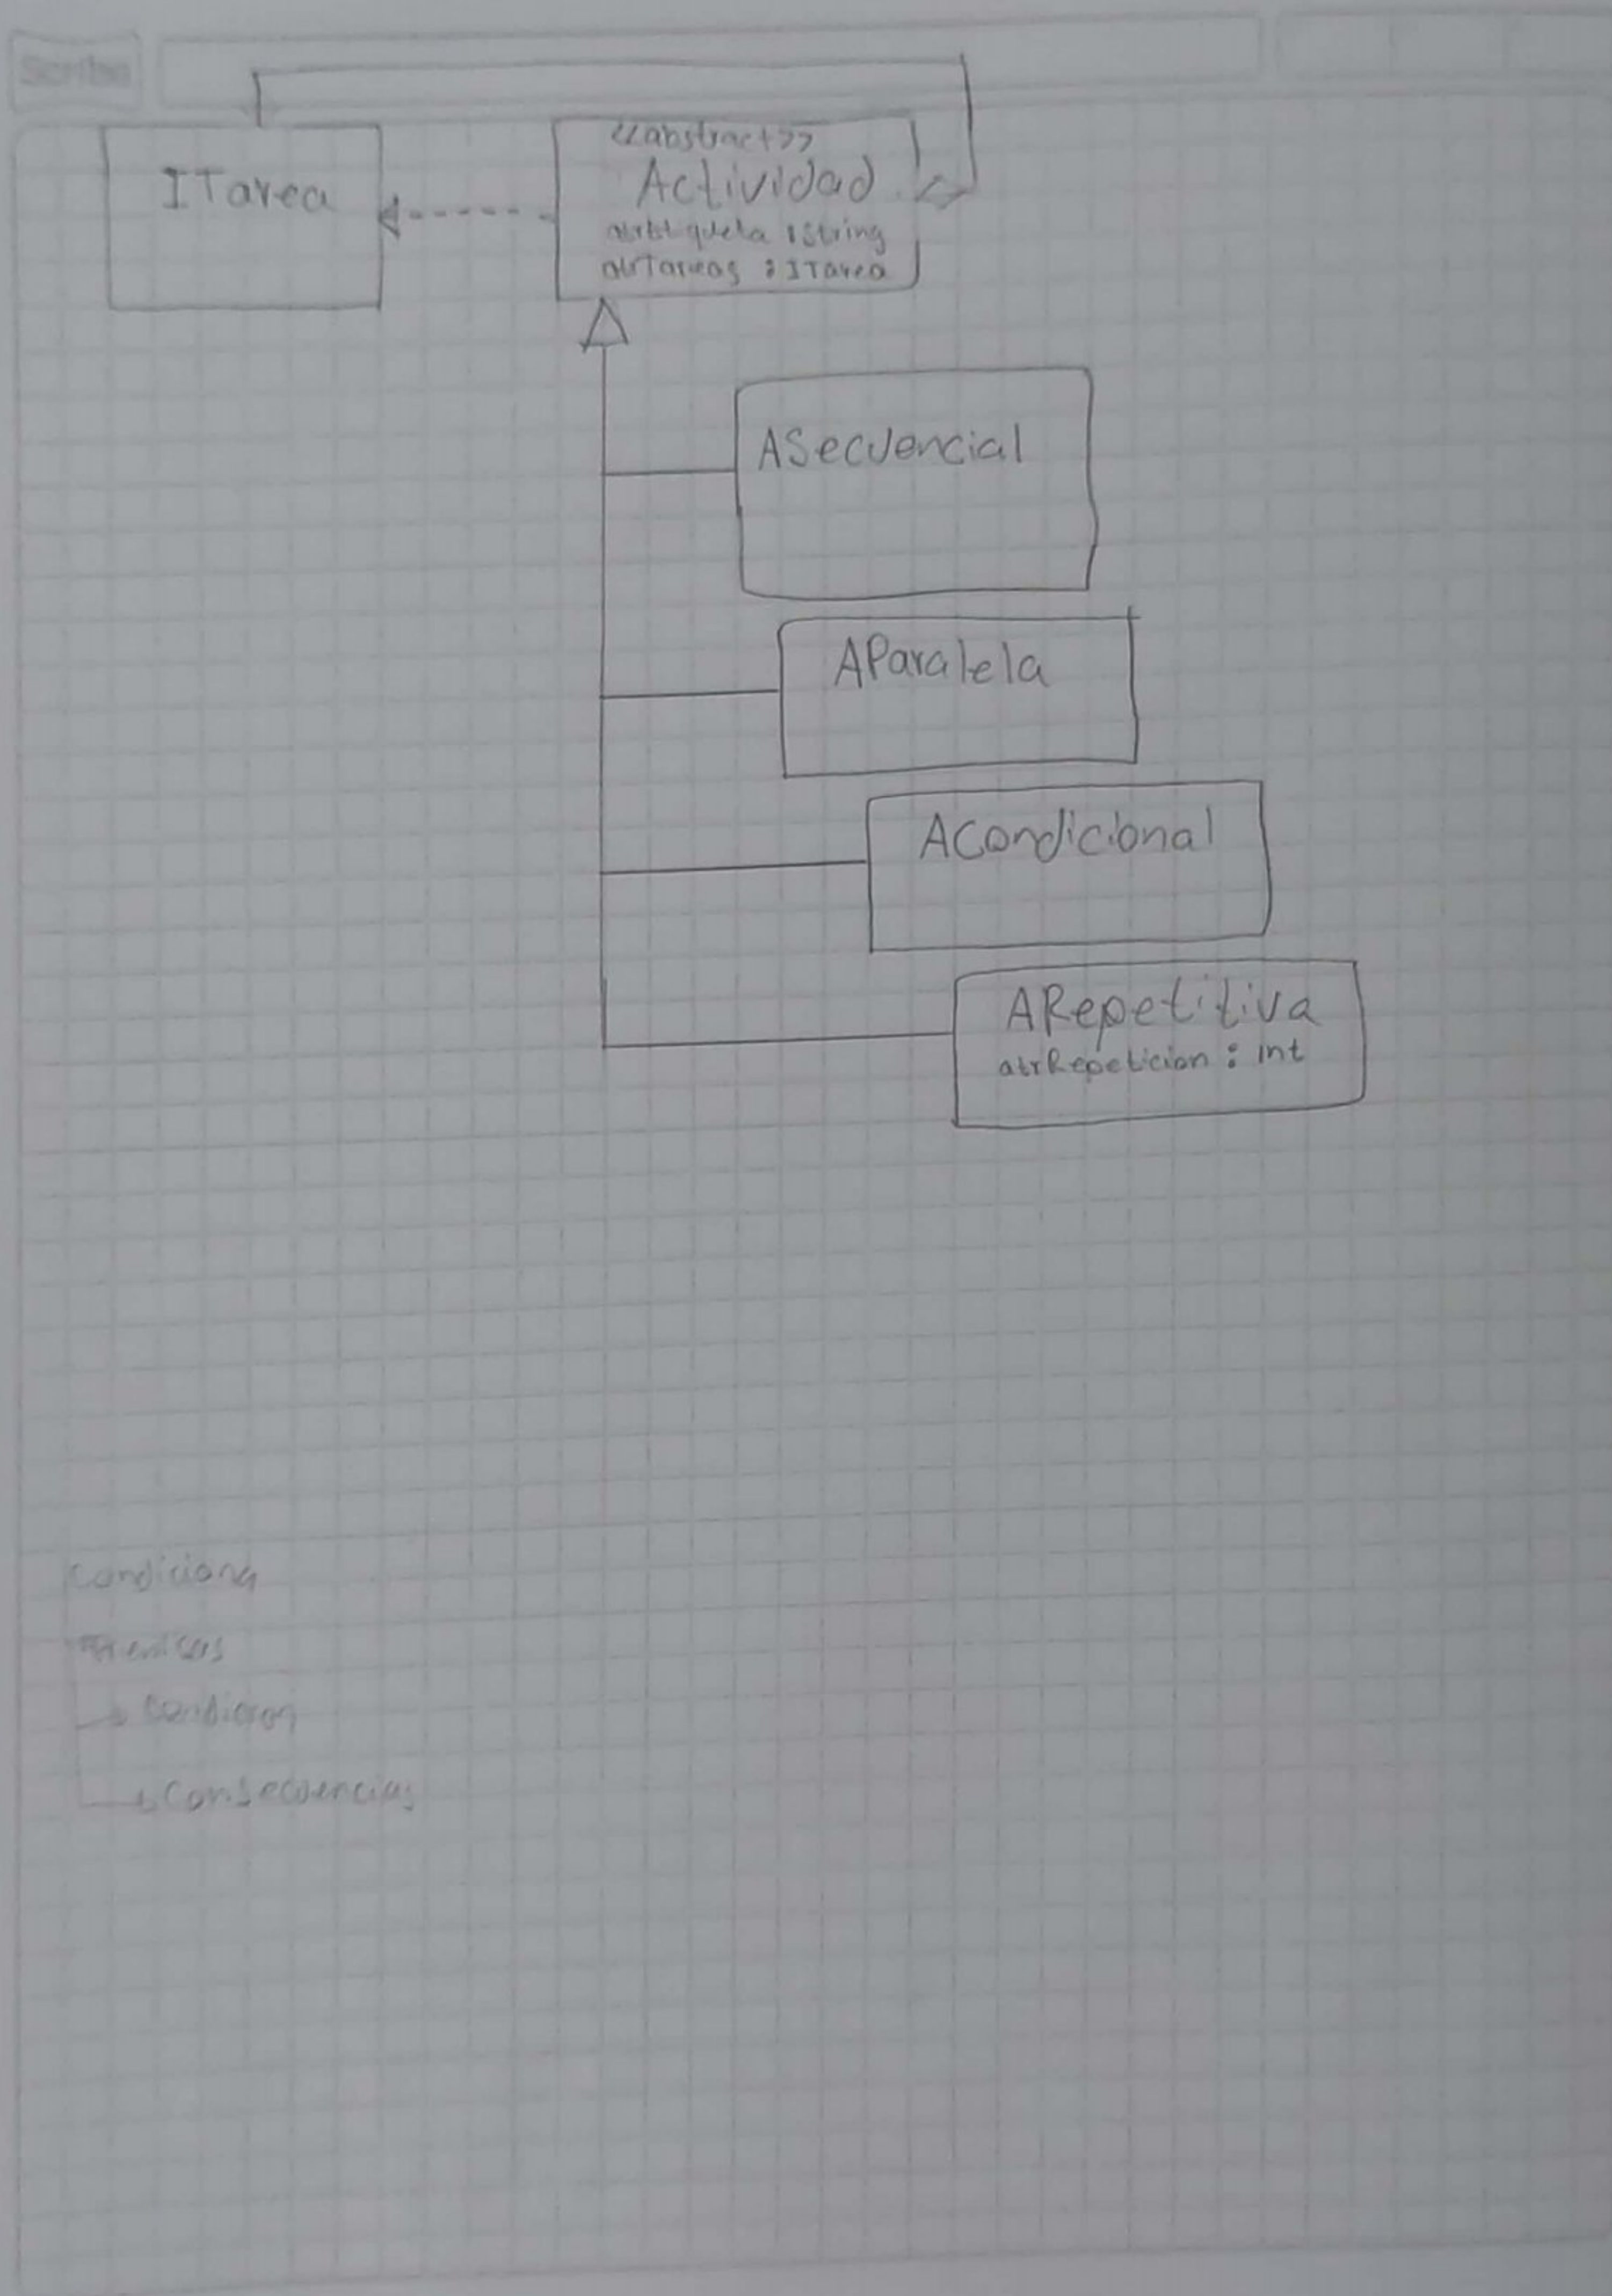 Scribe
ITarea
<<abstract>>
Actividad
atrEtiqueta : String
atrTareas : ITarea
ASecuencial
AParalela
ACondicional
ARepetitiva
atrRepeticion : int
Condiciona
Premisas
Condicion
Consecuencias